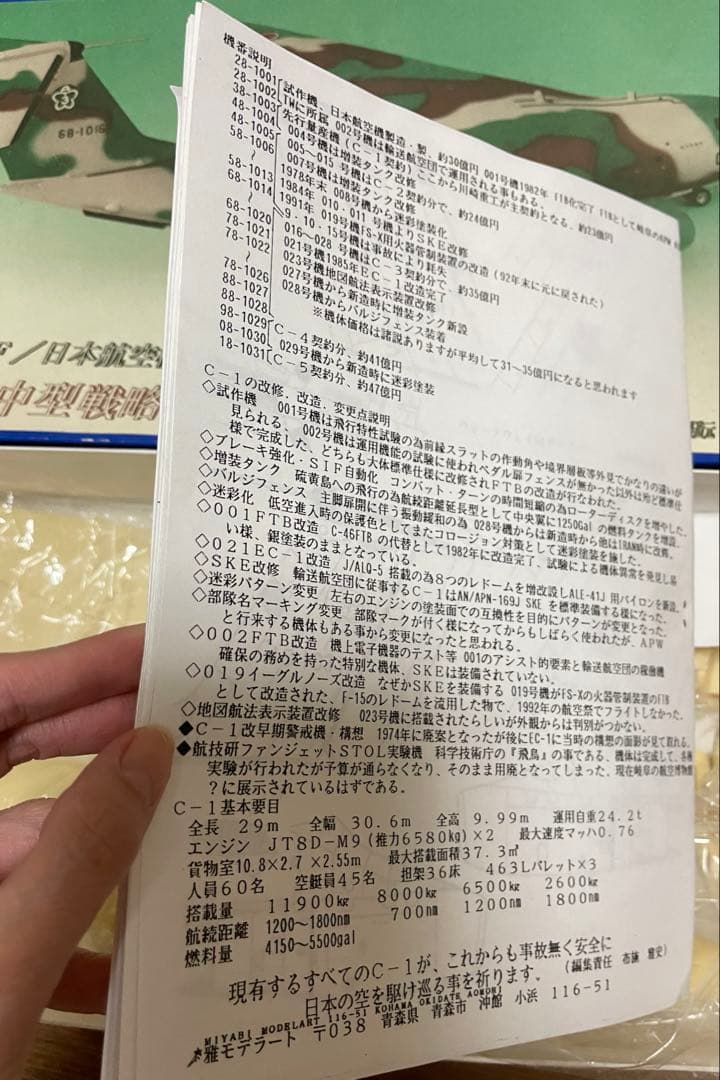 68-1016
F／日本航空
中型戦略
機番説明
28-1001 試作機、日本航空機製造・製 約30億円 001号機1982年 FTB化完了 FTBとして岐阜のAPW
28-1002 TWに所属 002号機は輸送航空団で運用される事もある。
38-1003 先行量産機（C-1契約）ここから川崎重工が主契約となる、約23億円
48-1004 004号機は増装タンク改修
48-1005 005～015 号機はC-2契約分で、約24億円
58-1006 007号機は増装タンク改修
～ 1978年末 008号機から迷彩塗装化
58-1013 1984年 010,011 号機よりSKE改修
68-1014 1991年 019号機FS-X用火器管制装置の改造（92年末に元に戻された）
～ 9・10・15号機は事故により耗失
68-1020 016～028 号機はC-3契約分で、約35億円
78-1021 021号機1985年EC-1改造完了
78-1022 023号機地図航法表示装置改修
～ 027号機から新造時に増装タンク新設
78-1026 028号機からバルジフェンス装着
88-1027 ※機体価格は諸説ありますが平均して31～35億円になると思われます
88-1028
98-1029 C-4契約分、約41億円
08-1030 029号機から新造時に迷彩塗装
18-1031 C-5契約分、約47億円
C-1の改修、改造、変更点説明
◇試作機 001号機は飛行特性試験の為前縁スラットの作動角や境界層板等外見でかなりの違いが
見られる、002号機は運用機能の試験に使われペダル扉フェンスが無かった以外は殆ど標準仕
様で完成した、どちらも大体標準仕様に改修されFTBの改造が行なわれた。
◇ブレーキ強化・SIF自動化 コンバット・ターンの時間短縮の為ローターディスクを増やした。
◇増装タンク 硫黄島への飛行の為航続距離延長型として中央翼に1250Galの燃料タンクを増設、
◇バルジフェンス 主脚扉開に伴う振動緩和の為 028号機からは新造時から他はIRAN時に改修、
◇迷彩化 低空進入時の保護色としてまたコロージョン対策として迷彩塗装を施した。
◇001FTB改造 C-46FTB の代替として1982年に改造完了、試験による機体異常を発見し易
い様、銀塗装のままとなっている。
◇021EC-1改造 J/ALQ-5 搭載の為8つのレドームを増改設しALE-41J 用パイロンを新設、
◇SKE改修 輸送航空団に従事するC-1はAN/APN-169J SKE を標準装備する様になった、
◇迷彩パターン変更 左右のエンジンの塗装面での互換性を目的にパターンが変更となった、
◇部隊名マーキング変更 部隊マークが付く様になってからもしばらく使われたが、APW
と行来する機体もある事から変更になったと思われる。
◇002FTB改造 機上電子機器のテスト等 001のアシスト的要素と輸送航空団の稼働機
確保の務めを持った特別な機体、SKEは装備されていない。
◇019イーグルノーズ改造 なぜかSKEを装備する 019号機がFS-Xの火器管制装置のFTB
として改造された、F-15のレドームを流用した物で、1992年の航空祭でフライトしなかった。
◇地図航法表示装置改修 023号機に搭載されたらしいが外観からは判別がつかない。
◆C-1改早期警戒機・構想 1974年に廃案となったが後にEC-1に当時の構想の面影が見て取れる。
◆航技研ファンジェットSTOL実験機 科学技術庁の『飛鳥』の事である、機体は完成して、各種
実験が行われたが予算が通らなくなり、そのまま用廃となってしまった、現在岐阜の航空博物館
？に展示されているはずである。
C-1基本要目
全長 29m 全幅 30.6m 全高 9.99m 運用自重24.2t
エンジン JT8D-M9（推力6580kg）×2 最大速度マッハ0.76
貨物室10.8×2.7 ×2.55m 最大搭載面積37.3㎡
人員60名 空挺員45名 担架36床 463Lパレット×3
搭載量 11900kg 8000kg 6500kg 2600kg
航続距離 1200～1800nm 700nm 1200nm 1800nm
燃料量 4150～5500gal
現有するすべてのC-1が、これからも事故無く安全に
日本の空を駆け巡る事を祈ります。 （編集責任 布施 雅史）
MIYABI MODELART 116-51 KOHAMA OKIDATE AOMORI
雅モデラート 〒038 青森県 青森市 沖館 小浜 116-51